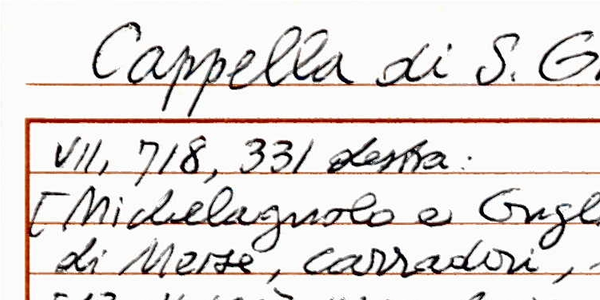 Cappella di S. G
VII, 718, 331 destra:
[Michelagnolo e Gugl
di Meise, carradori,